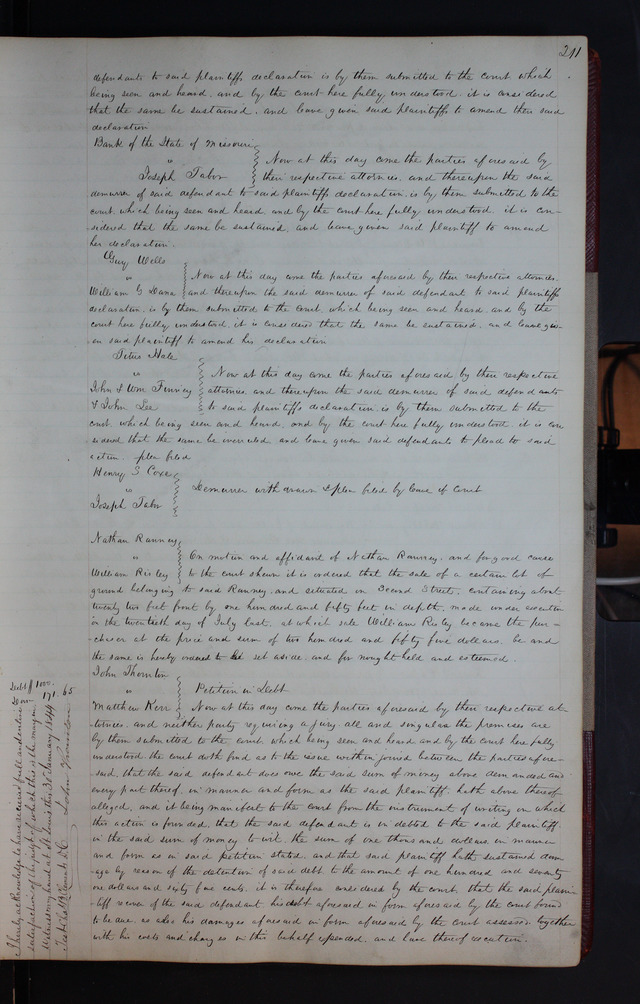 241
defendants to said plaintiffs declaration is by them submitted to the court which
being seen and heard, and by the court here fully understood. it is considered
that the same be sustained. and leave given said plaintiffs to amend their said
declaration
Bank of the State of Missouri
"
Joseph Tabor
Now at this day come the parties aforesaid by
their respective attornies. and thereupon the said
demurrer of said defendant to said plaintiffs declaration. is by them submitted to the
court which being seen and heard and by the court here fully understood. it is con-
sidered that the same be sustained, and leave given said plaintiff to amend
her declaration.
Guy Wells
"
William G Dana
Now at this day come the parties aforesaid by their respective attornies.
and thereupon the said demurrer of said defendant to said plaintiffs
declaration, is by them submitted to the Court which being seen and heard, and by the
court here fully understood. it is considered that the same be sustained. and leave giv-
en said plaintiff to amend his declaration
Titus Hale
"
John & Wm Finney
& John Lee
Now at this day come the parties aforesaid by their respective
attornies. and thereupon the said demurrer of said defendants
to said plaintiffs declaration is by them submitted to the
court. which being seen and heard, and by the court here fully understood. it is con
sidered that the same be overruled and leave given said defendants to plead to said
action. plea filed
Henry S Coxe
"
Joseph Tabor
Demurrer withdrawn & plea filed by leave of Court
Nathan Ranney
"
William Risley
On motion and affidavit of Nathan Ranney. and for good cause
to the court shewn it is ordered that the sale of a certain lot of
ground belonging to said Ranney, and situated in Second Street. containing about
twenty two feet front by one hundred and fifty feet in depth. made under execution
on the twentieth day of July last. at which sale William Risley became the pur-
chaser at the price and sum of two hundred and fifty five dollars. be and
the same is hereby ordered to be set aside. and for nought held and esteemed.
John Thornton
"
Matthew Kerr
Petition in Debt
Now at this day come the parties aforesaid by their respective at-
tornies. and neither party requiring a jury all and singular the premises are
by them submitted to the court. which being seen and heard and by the court here fully
understood the court doth find as to the issue within joined between the parties afore-
said, that the said defendant does owe the said sum of money above demanded and
every part thereof. in manner and form as the said plaintiff. hath above thereof
alleged, and it being manifest to the court from the instrument of writing on which
this action is founded. that the said defendant is indebted to the said plaintiff
in the said sum of money to wit. the sum of one thousand dollars in manner
and form as in said petition stated. and that said plaintiff hath sustained dam-
age by reason of the detention of said debt to the amount of one hundred and seventy
one dollars and sixty five cents. it is therefore considered by the court. that the said plain-
tiff recover of the said defendant his debt aforesaid in form aforesaid by the court found
to be due. as also his damages aforesaid in form aforesaid by the court assessed. together
with his costs and charges in this behalf expended. and have thereof execution.
Debt $1000.
171.65
I hereby acknowledge to have received full and entire
satisfaction of the judgt of which this is the margin
Witness my hand at St Louis this 31st January 1844
Test
John